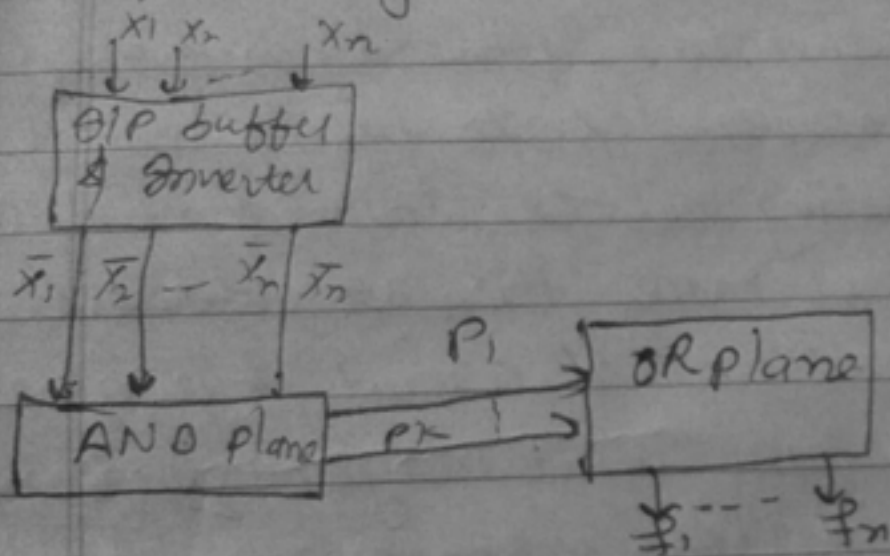 x1 x2 -- xn
I/P buffer
& Inverter
x̄1 x̄2 -- x̄n x̄n
P1
OR plane
AND plane
Pk
f1 ---- fn